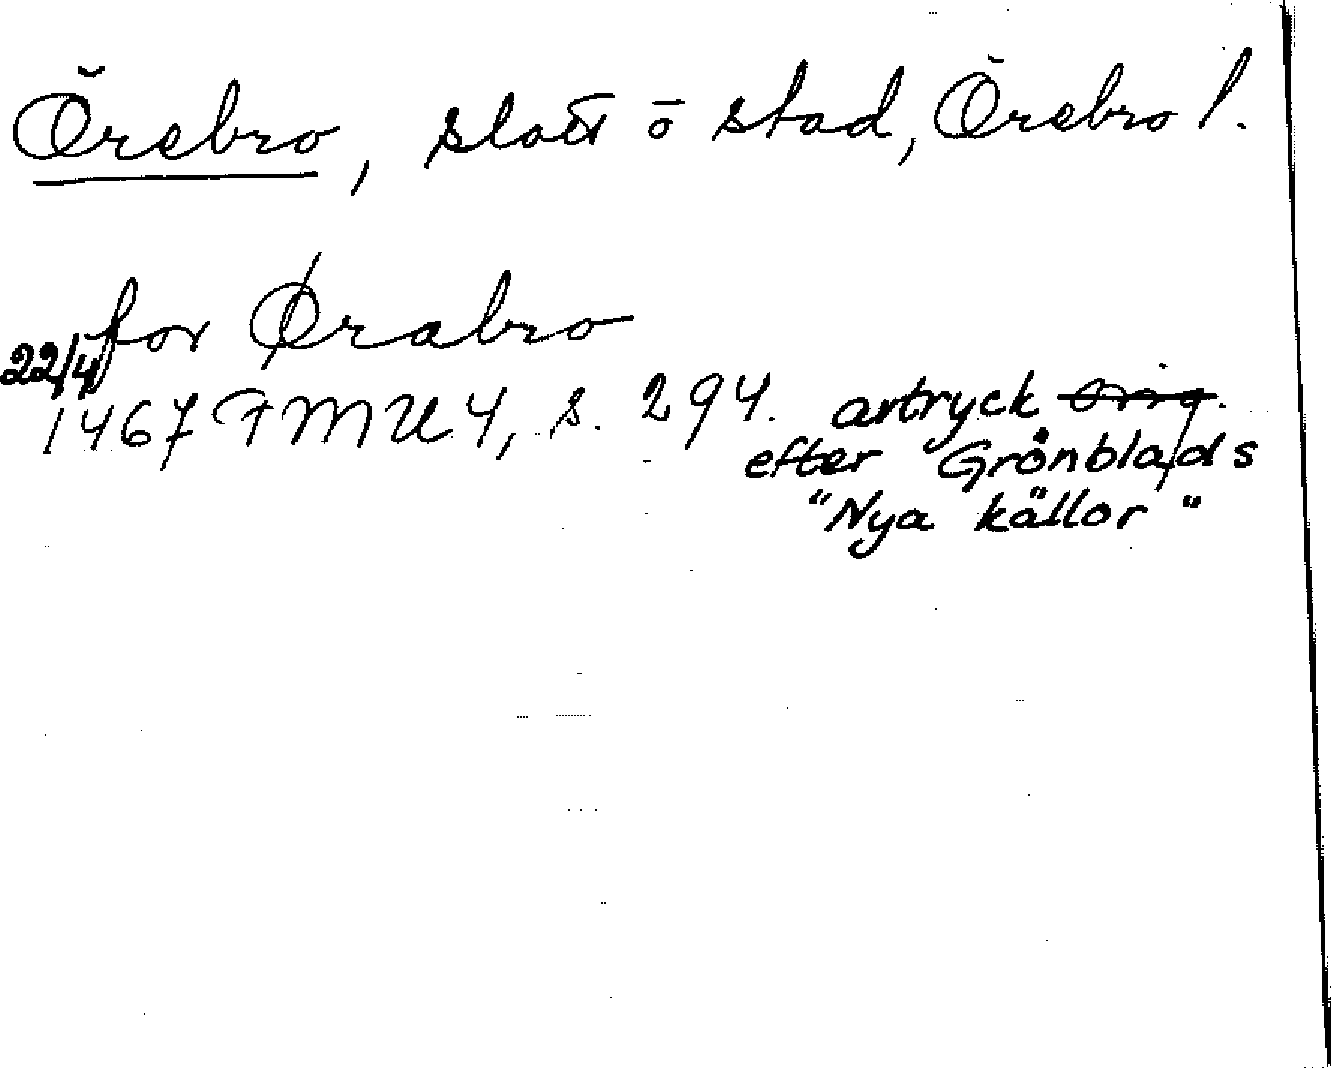 Örebro, slott o stad, Örebro l.
for Ørabro
22/4 1467 FMU 4, s. 294. avtryck orig.
efter Grönblads
"Nya källor"